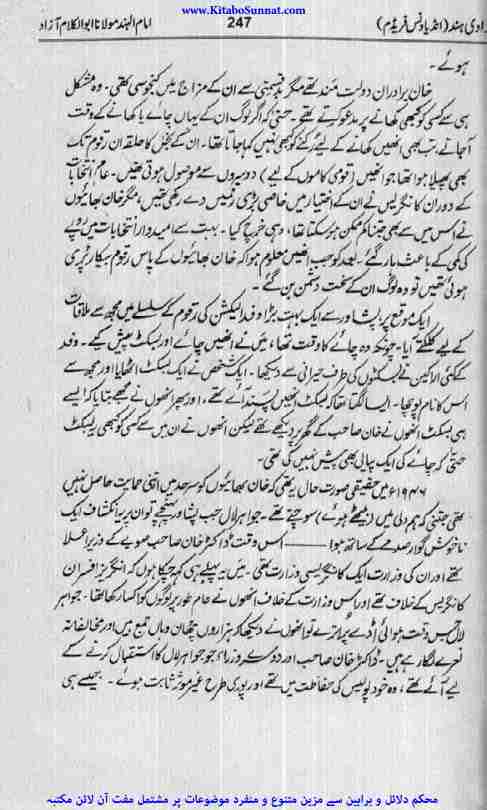 www.KitaboSunnat.com
زادی ہند (انڈیا ونس فریڈم) 247 امام الہند مولانا ابوالکلام آزاد
ہوئے۔
خان برادران دولت مند تھے مگر بدقسمتی سے ان کے مزاج میں کنجوسی تھی۔ وہ مشکل
ہی سے کسی کو بھی کھانے پر مدعو کرتے تھے۔ حتیٰ کہ اگر لوگ ان کے یہاں چائے یا کھانے کے وقت
آجاتے، تب بھی انھیں کھانے کے لیے رکنے کو بھی نہیں کہا جاتا تھا۔ ان کے بخل کا حلقہ ان رقوم تک
بھی پھیلا ہوا تھا جو انھیں (قومی کاموں کے لیے) دوسروں سے موصول ہوتی تھیں۔ عام انتخابات
کے دوران کانگریس نے ان کے اختیار میں خاصی بڑی رقمیں دے رکھی تھیں، مگر خان بھائیوں
نے اس میں سے بھی جتنا کم ممکن ہو سکتا تھا، وہی خرچ کیا۔ بہت سے امیدوار انتخابات میں روپے
کی کمی کے باعث ہار گئے۔ بعد کو جب انھیں معلوم ہوا کہ خان بھائیوں کے پاس رقوم بیکار پڑی
ہوئی تھیں تو وہ لوگ ان کے سخت دشمن بن گئے۔
ایک موقع پر پشاور سے ایک بہت بڑا وفد الیکشن کی رقوم کے سلسلے میں مجھ سے ملاقات
کے لیے کلکتے آیا۔ چونکہ وہ چائے کا وقت تھا، میں نے انھیں چائے اور بسکٹ پیش کیے۔ وفد
کے کئی اراکین نے بسکٹوں کی طرف حیرانی سے دیکھا۔ ایک شخص نے ایک بسکٹ اٹھایا اور مجھ سے
اس کا نام پوچھا۔ ایسا لگتا تھا کہ بسکٹ انھیں پسند آئے تھے، اور پھر انھوں نے مجھے بتایا کہ ایسے
ہی بسکٹ انھوں نے خان صاحب کے گھر پر دیکھے تھے لیکن انھوں نے ان میں سے کسی کو کبھی یہ بسکٹ
حتیٰ کہ چائے کی ایک پیالی بھی پیش نہیں کی تھی۔
۱۹۴۶ء میں حقیقی صورت حال یہ تھی کہ خان بھائیوں کو سرحد میں اتنی حمایت حاصل نہیں
تھی جتنی کہ ہم دلی میں (بیٹھے ہوئے) سوچتے تھے۔ جواہر لال جب پشاور پہنچے تو ان پر یہ انکشاف ایک
ناخوش گوار صدمے کے ساتھ ہوا —— اس وقت ڈاکٹر خان صاحب صوبے کے وزیر اعلا
تھے اور ان کی وزارت ایک کانگریسی وزارت تھی۔ میں یہ پہلے ہی کہہ چکا ہوں کہ انگریز افسران
کانگریس کے خلاف تھے اور اس وزارت کے خلاف انھوں نے عام طور پر لوگوں کو اکسا رکھا تھا۔ جواہر
لال جس وقت ہوائی اڈے پر اترے تو انھوں نے دیکھا کہ ہزاروں پٹھان وہاں جمع ہیں اور مخالفانہ
نعرے لگا رہے ہیں۔ ڈاکٹر خان صاحب اور دوسرے وزراء جو جواہر لال کا استقبال کرنے کے
لیے آئے تھے، وہ خود پولیس کی حفاظت میں تھے اور پوری طرح غیر موثر ثابت ہوئے۔ جیسے ہی
محکم دلائل و براہین سے مزین متنوع و منفرد موضوعات پر مشتمل مفت آن لائن مکتبہ